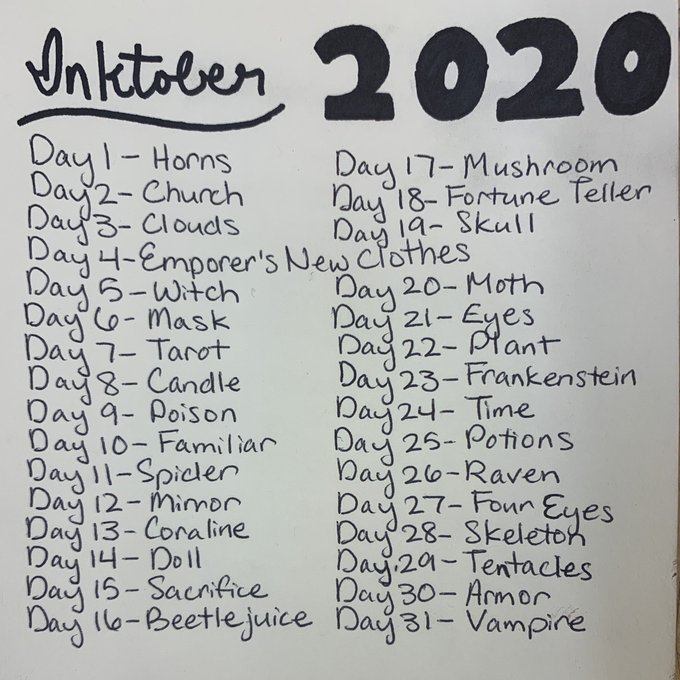 Inktober 2020
Day 1 - Horns
Day 2 - Church
Day 3 - Clouds
Day 4 - Emporer's New Clothes
Day 5 - Witch
Day 6 - Mask
Day 7 - Tarot
Day 8 - Candle
Day 9 - Poison
Day 10 - Familiar
Day 11 - Spider
Day 12 - Mirror
Day 13 - Coraline
Day 14 - Doll
Day 15 - Sacrifice
Day 16 - Beetlejuice
Day 17 - Mushroom
Day 18 - Fortune Teller
Day 19 - Skull
Day 20 - Moth
Day 21 - Eyes
Day 22 - Plant
Day 23 - Frankenstein
Day 24 - Time
Day 25 - Potions
Day 26 - Raven
Day 27 - Four Eyes
Day 28 - Skeleton
Day 29 - Tentacles
Day 30 - Armor
Day 31 - Vampire